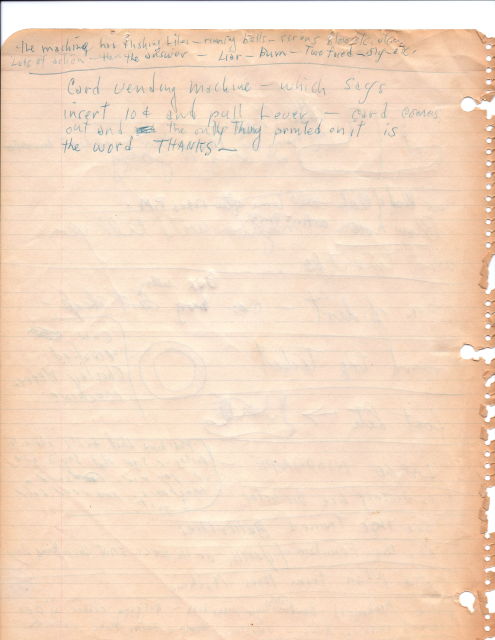 The machine has flashing lites - ringing bells - screens
Lots of action - then the answer - Liar - Bum - Two Faced - Sly - etc.
Card vending machine - which says
insert 10¢ and pull Lever - card comes
out and the only thing printed on it is
the word THANKS -